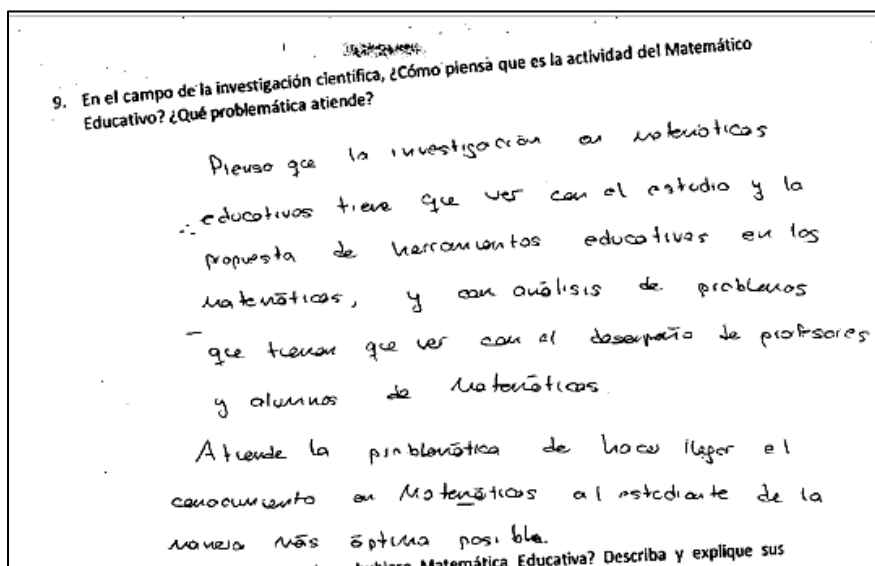 9. En el campo de la investigación científica, ¿Cómo piensa que es la actividad del Matemático
Educativo? ¿Qué problemática atiende?
Pienso que la investigación en matemáticas
educativas tiene que ver con el estudio y la
propuesta de herramientas educativas en las
matemáticas, y con análisis de problemas
que tienen que ver con el desempeño de profesores
y alumnos de Matemáticas.
Atiende la problemática de hacer llegar el
conocimiento en Matemáticas al estudiante de la
manera más óptima posible.
hubiera Matemática Educativa? Describa y explique sus